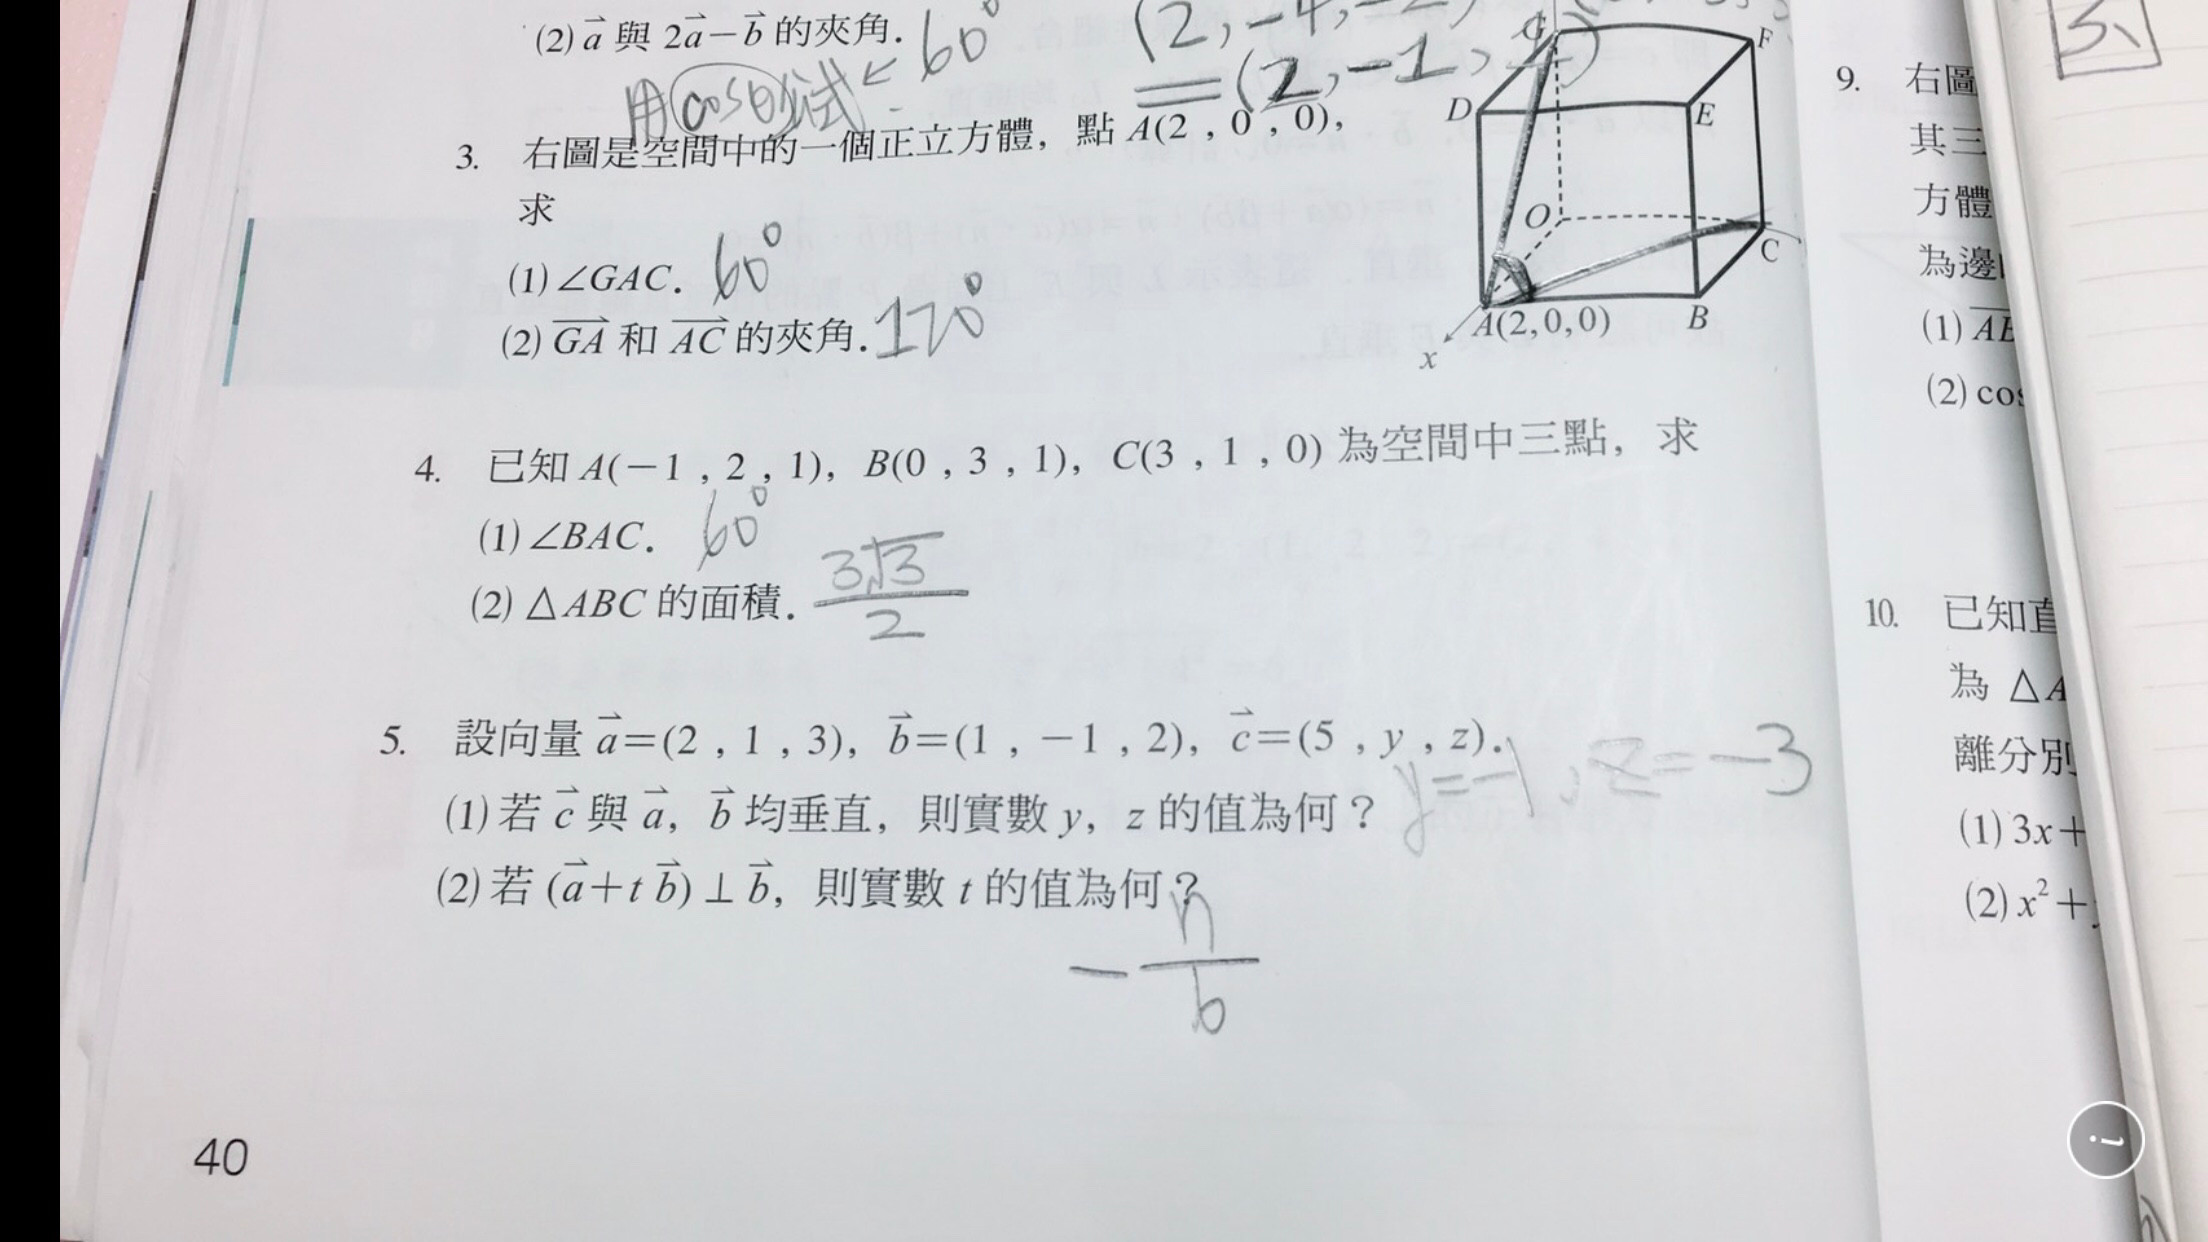 (2) a⃗ 與 2a⃗−b⃗ 的夾角. 60°
(2, -4, -2)
=(2, -1,
用cosθ試
3. 右圖是空間中的一個正立方體，點 A(2 , 0 , 0),
求
(1) ∠GAC. 60°
(2) GA⃗ 和 AC⃗ 的夾角. 120°
G
F
D
E
O
C
A(2,0,0)
B
x
4. 已知 A(−1 , 2 , 1), B(0 , 3 , 1), C(3 , 1 , 0) 為空間中三點，求
(1) ∠BAC. 60°
(2) △ABC 的面積. 3√3/2
5. 設向量 a⃗=(2 , 1 , 3), b⃗=(1 , −1 , 2), c⃗=(5 , y , z).
y=-1, z=-3
(1) 若 c⃗ 與 a⃗, b⃗ 均垂直，則實數 y, z 的值為何？
(2) 若 (a⃗+t b⃗)⊥b⃗, 則實數 t 的值為何？
40
9. 右圖
其三
方體
為邊
(1) AE
(2) cos
10. 已知直
為 △A
離分別
(1) 3x+
(2) x²+